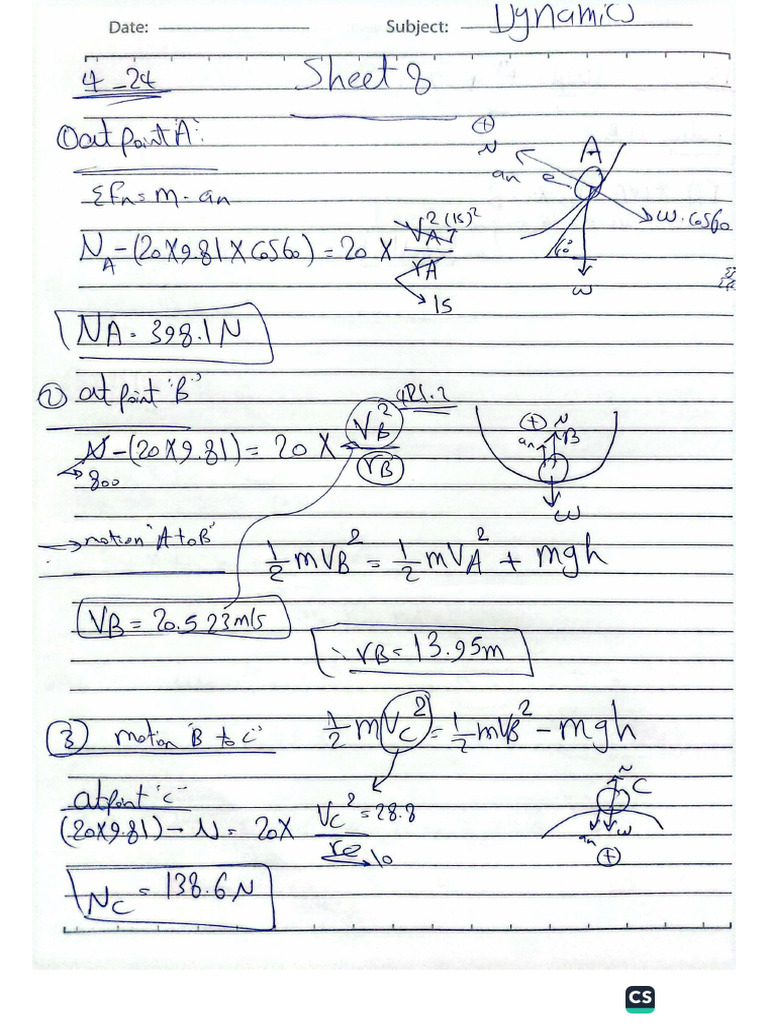 Date: Subject: Dynamics
4_24 Sheet 8
① at point "A":
ΣFn = m · an
N_A - (20×9.81×cos60) = 20 × V_A² (15)² / r_A → 15
N_A = 398.1 N
⊕ N A an W·cos60 60° W
② at point "B"
N - (20×9.81) = 20 × V_B² / r_B 421.2
→ 800
⊕ N an B W
→ motion "A to B" ½ mV_B² = ½ mV_A² + mgh
V_B = 20.523 m/s
∴ r_B = 13.95 m
③ motion "B to C" ½ mV_C² = ½ mV_B² - mgh
at point "C"
(20×9.81) - N = 20 × V_C² = 28.8 / r_c → 10
N C an W ⊕
N_C = 138.6 N
CS